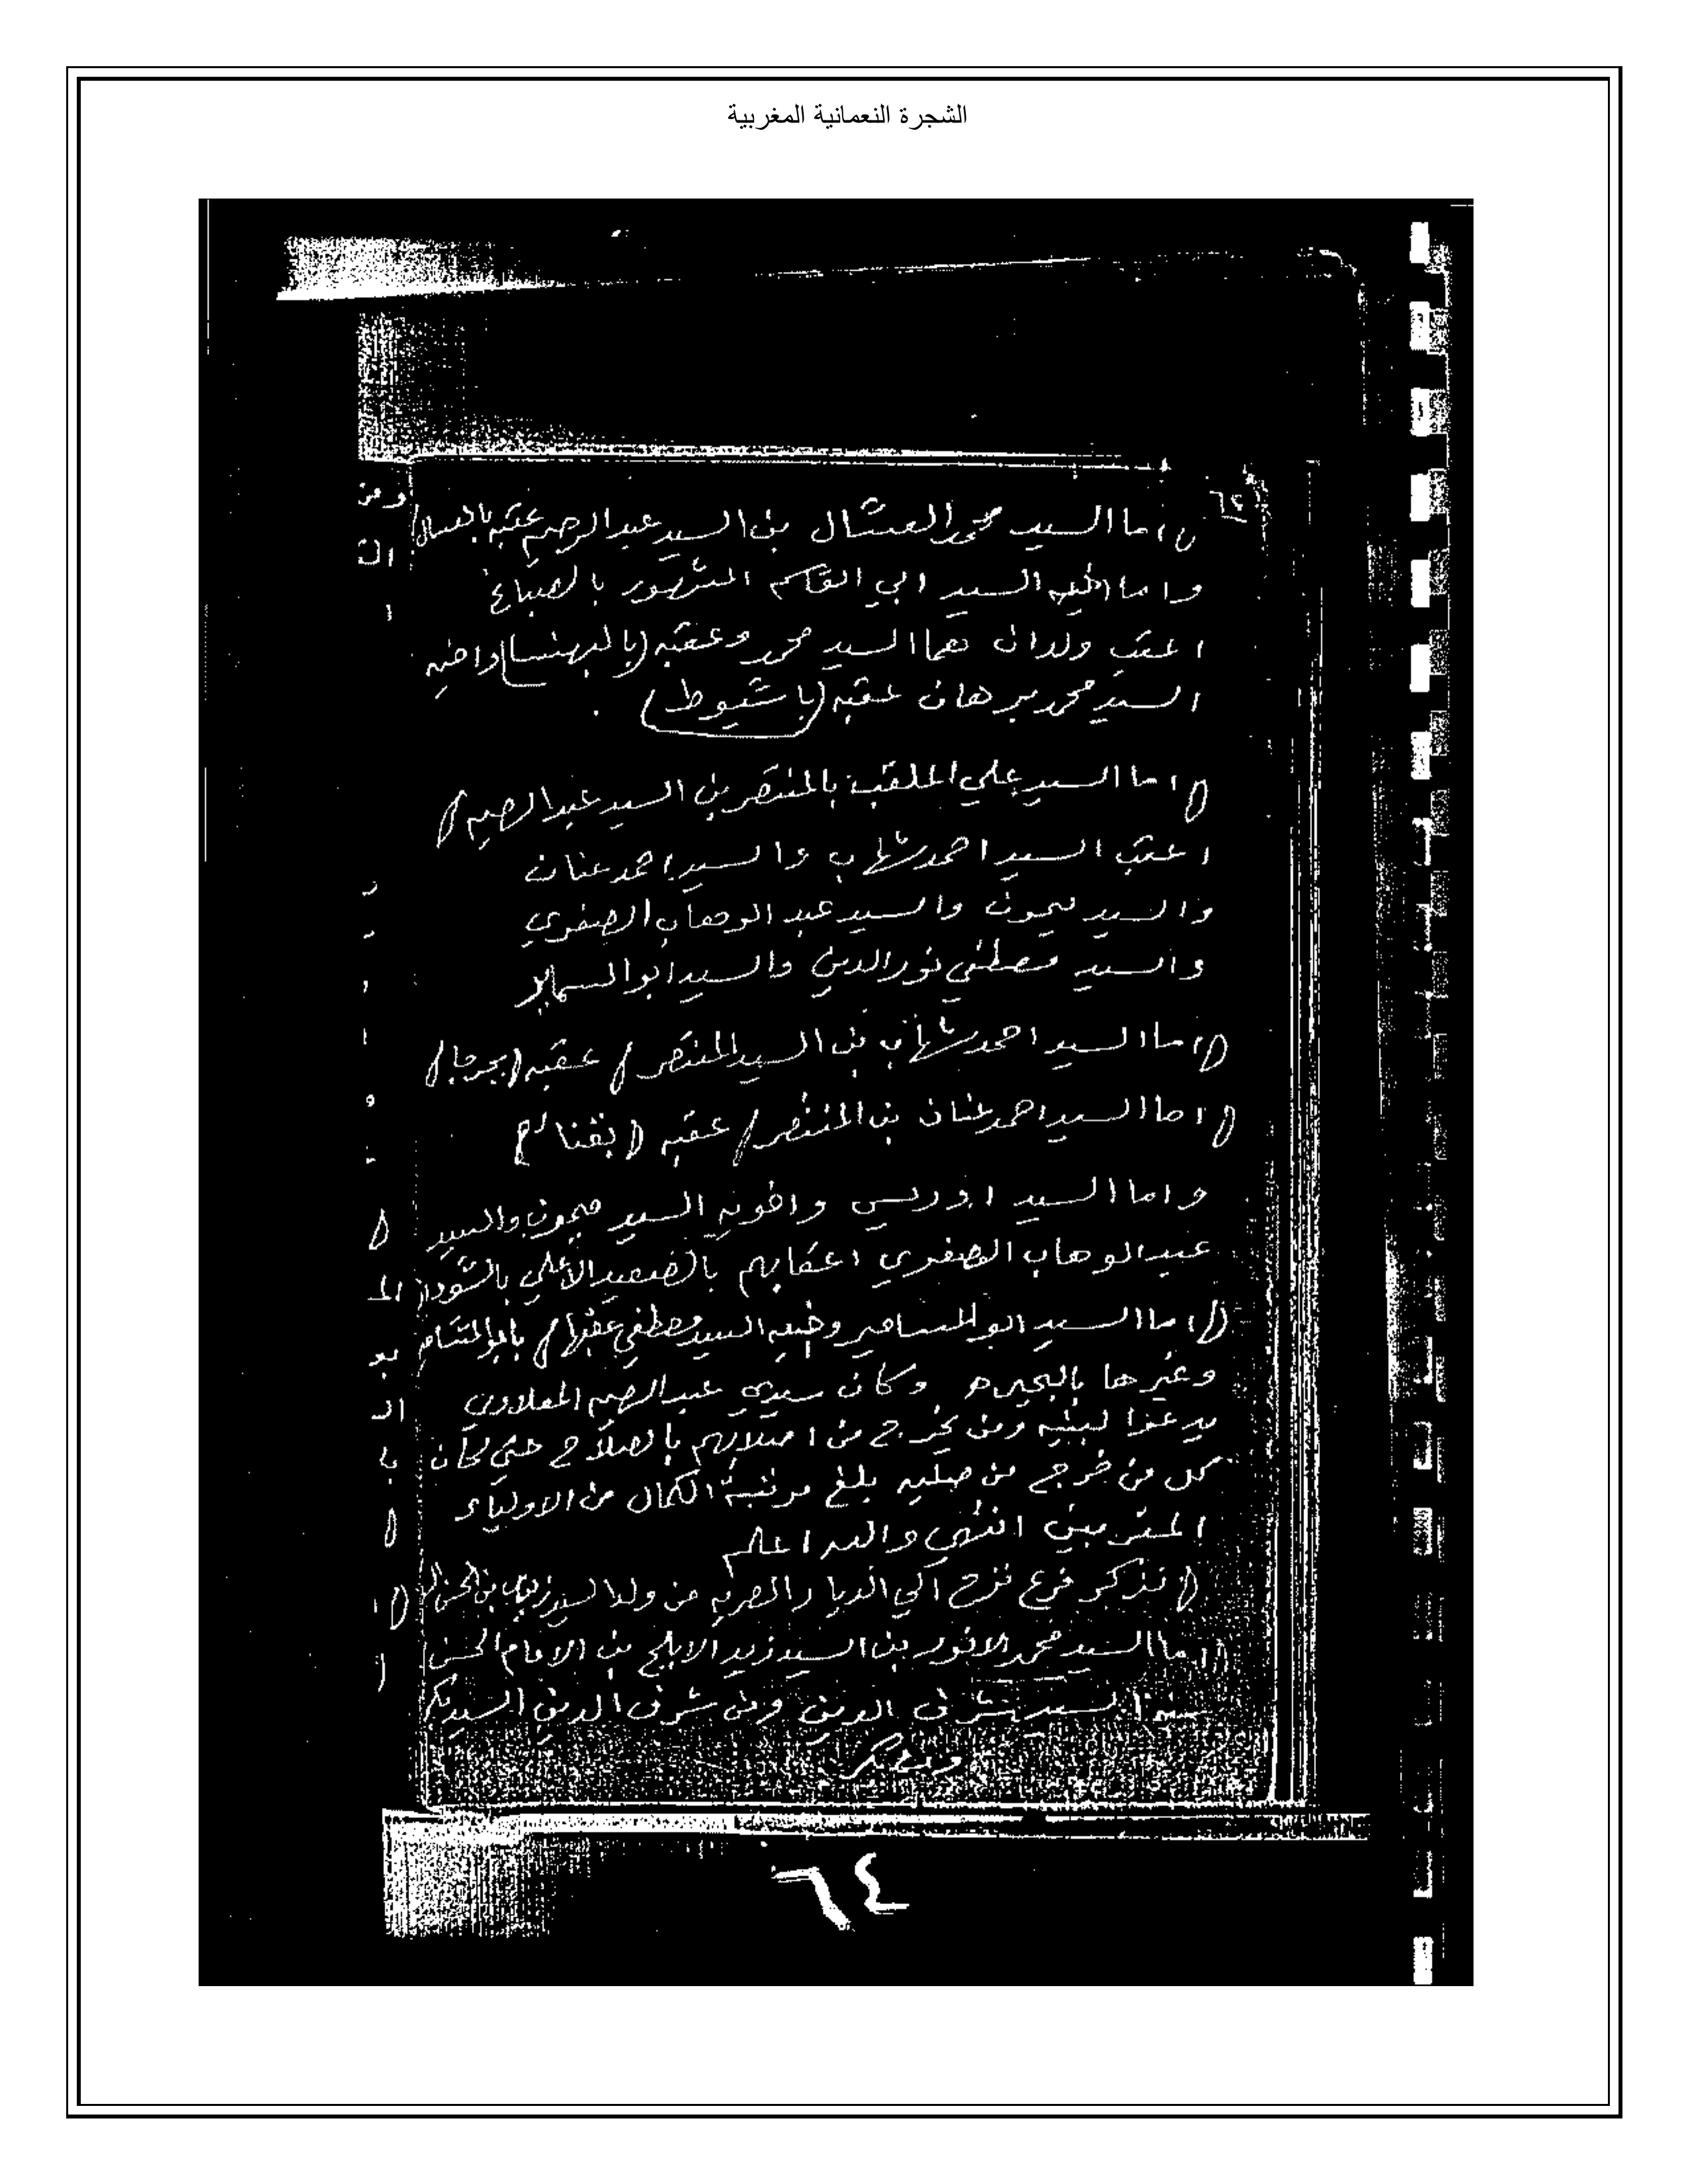 الشجرة النعمانية المغربية
٦٤
اما السيد محمد العشال بن السيد عبد الرحيم عقبه
واما اخيه السيد ابي القاسم المشهور بالصباغ
اعقب ولدان هما السيد محمد وعقبه (بالبهنسا) واخيه
السيد محمد برهان عقبه (باشيوط)
(اما السيد علي الملقب بالمنتصر بن السيد عبد الرحيم)
اعقب السيد احمد شهاب والسيد احمد عنان
والسيد والسيد عبد الوهاب الصفري
والسيد مصطفي نور الدين والسيد ابو
(اما السيد احمد شهاب بن السيد المنتصر) عقبه (بجرجا)
(اما السيد احمد عنان بن المنتصر) عقبه (بقنا)
واما السيد ادريس واخويه السيد والسيد
عبد الوهاب الصفري اعقابهم بالصعيد الأعلي
(اما السيد ابو واخيه السيد مصطفي عقبها)
وغيرها بالبحيره وكان سيدي عبد الرحيم
يدعوا لبنيه ومن يخرج من اصلابهم بالصلاح حتي كان
كل من خرج من صلبه بلغ مرتبة الكمال من الاولياء
المقربين انتهي والله اعلم
(نذكر فرع نزح الي الديار المصريه من ولد السيد زيد بن الحسن
(اما السيد محمد الانور بن السيد زيد الابلج بن الامام الحسن
السيد شرف الدين ومن شرف الدين السيد
٦٤